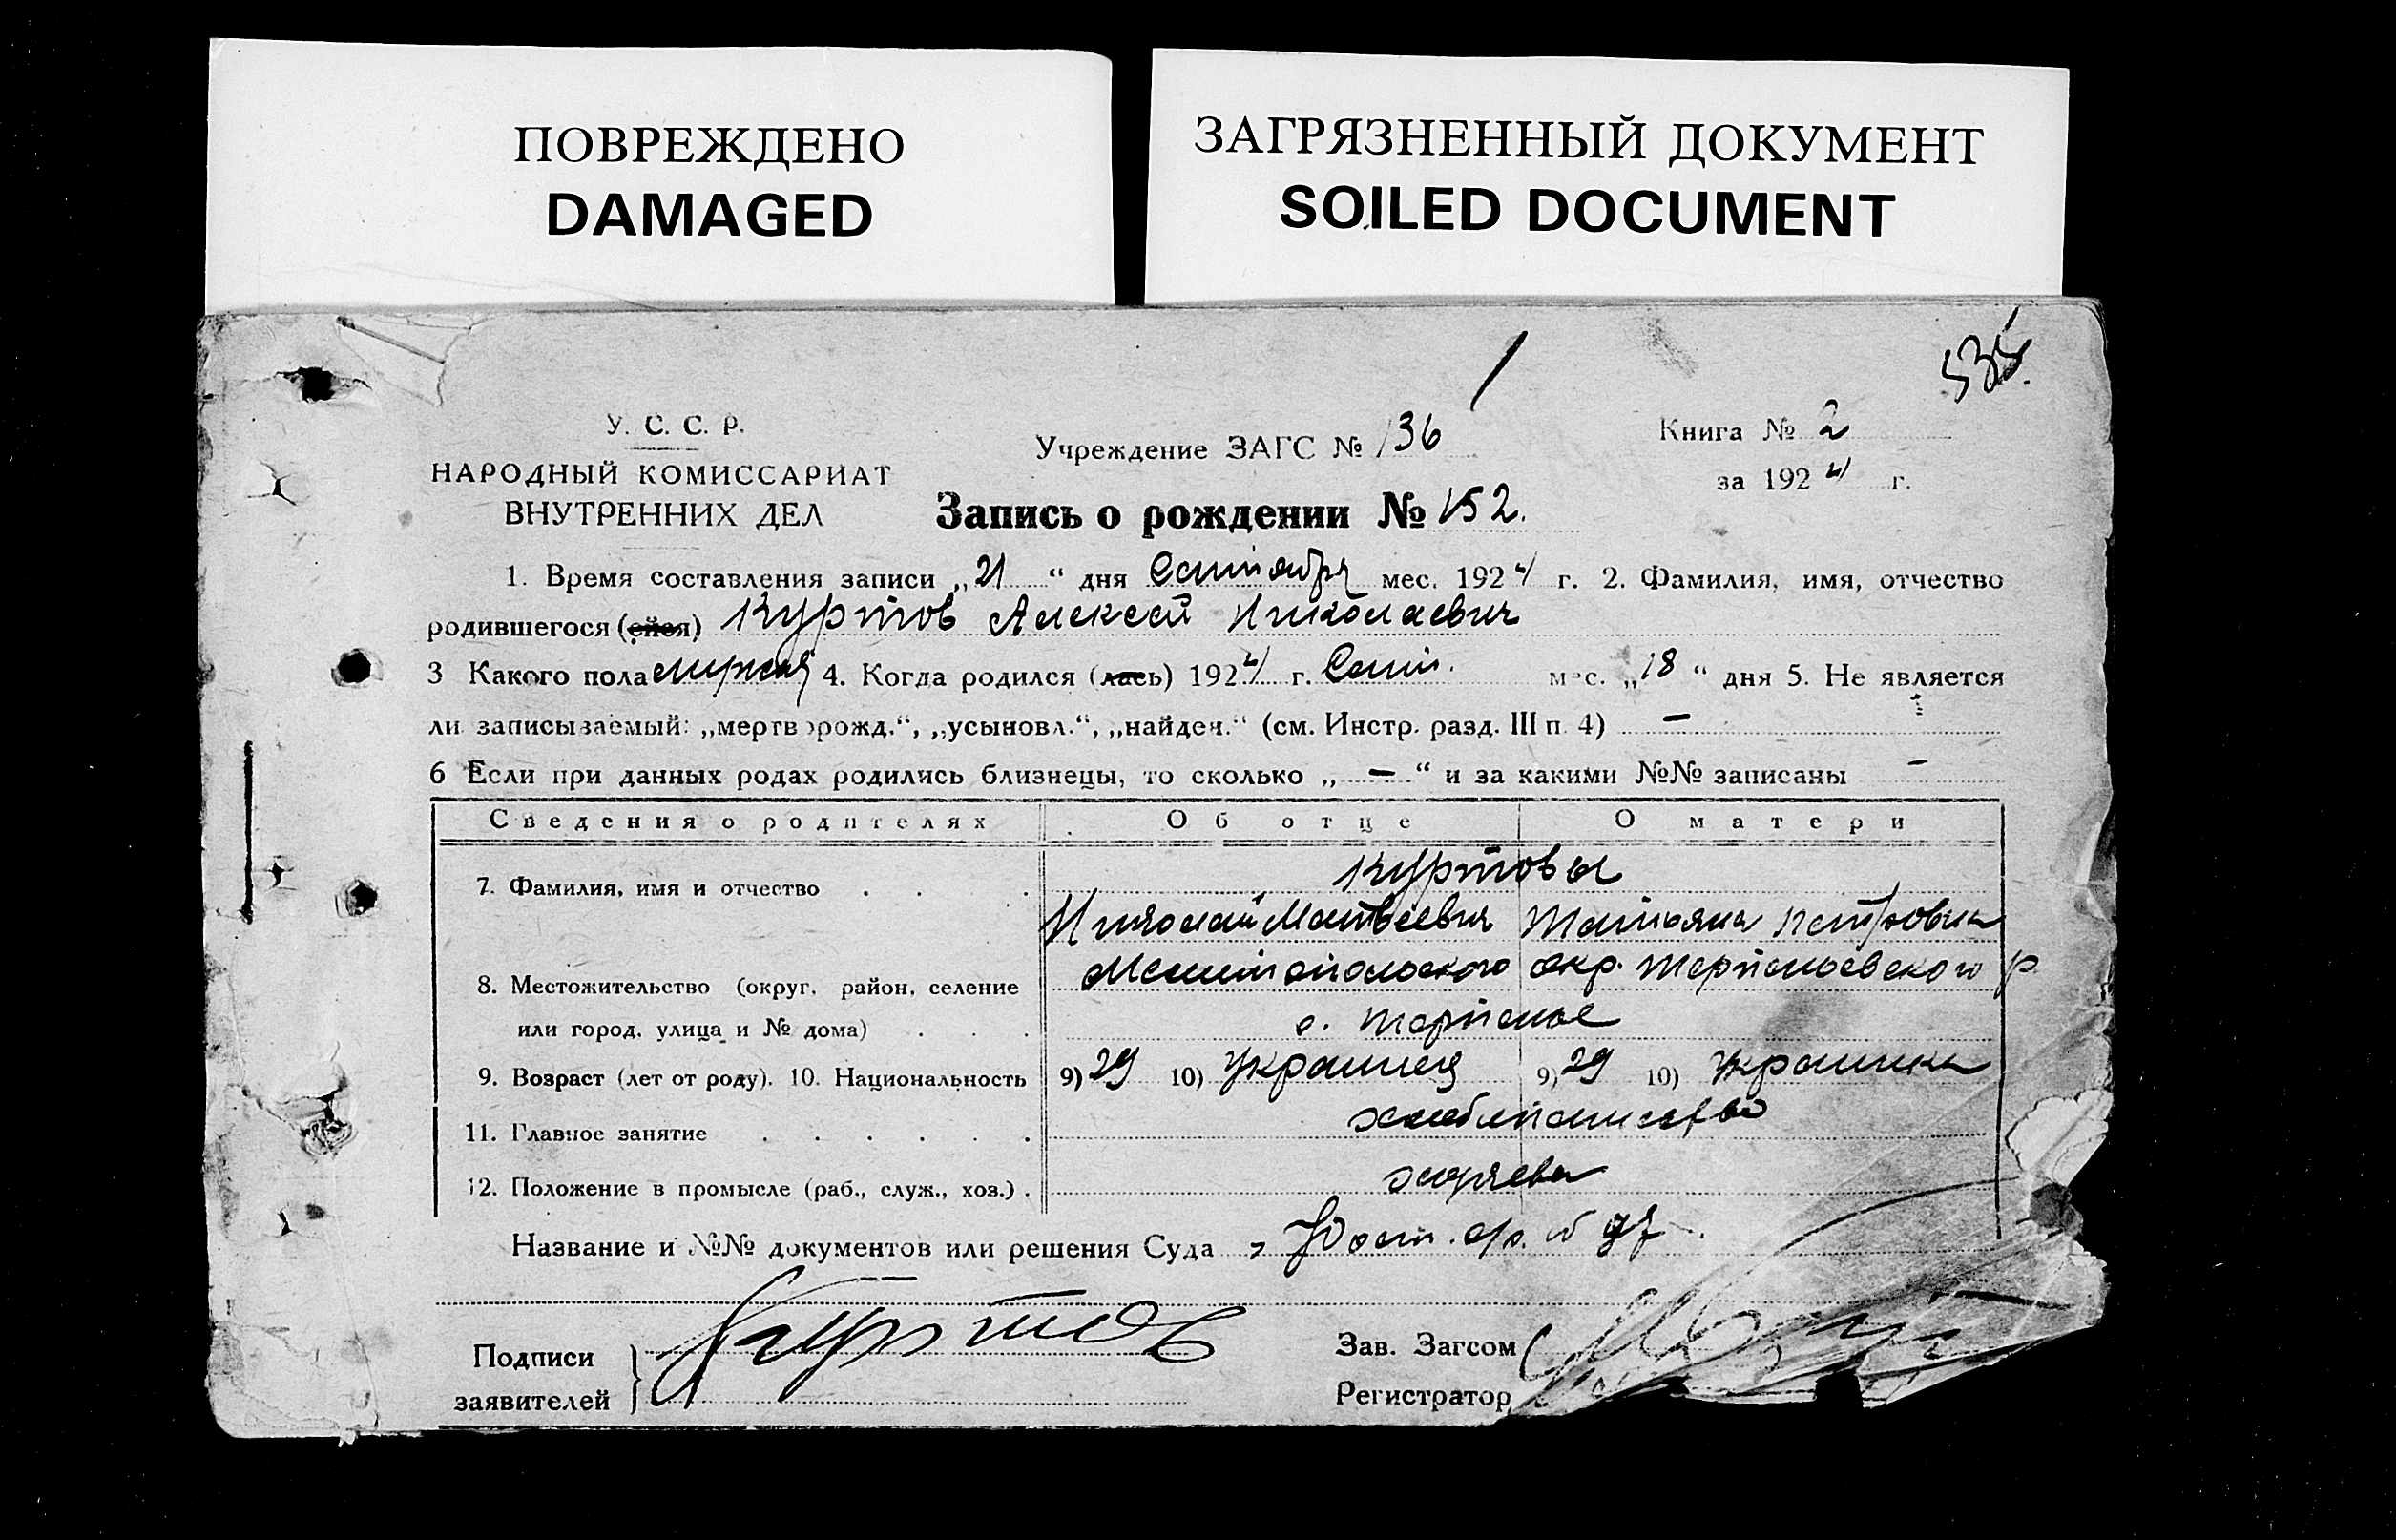 ПОВРЕЖДЕНО
DAMAGED
ЗАГРЯЗНЕННЫЙ ДОКУМЕНТ
SOILED DOCUMENT
535.
У. С. С. Р.
НАРОДНЫЙ КОМИССАРИАТ
ВНУТРЕННИХ ДЕЛ
Учреждение ЗАГС № 136
Книга № 2
за 1924 г.
Запись о рождении № 152.
1. Время составления записи „21“ дня Сентября мес. 1924 г. 2. Фамилия, имя, отчество
родившегося (ейся) Куртов Алексей Николаевич
3 Какого пола мужск 4. Когда родился (лась) 1924 г. Сент. мес. „18“ дня 5. Не является
ли записываемый: „мертворожд.“, „усыновл.“, „найден.“ (см. Инстр. разд. III п. 4) –
6 Если при данных родах родились близнецы, то сколько „ – “ и за какими №№ записаны –
Сведения о родителях Об отце О матери
Куртовы
7. Фамилия, имя и отчество . . .
Николай Матвеевич Татьяна Петровна
Мелитопольского окр. Терпеньевского р.
8. Местожительство (округ, район, селение
или город, улица и № дома) . . .
с. Терпенье
9. Возраст (лет от роду). 10. Национальность 9) 29 10) Украинец 9) 29 10) Украинка
хлебопашество
11. Главное занятие . . . . . .
12. Положение в промысле (раб., служ., хоз.) . хозяева
Название и №№ документов или решения Суда
Подписи
заявителей } Куртов
Зав. Загсом
Регистратор